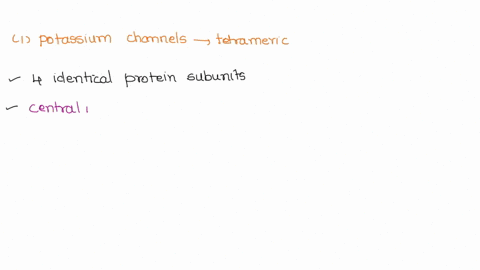 (1) potassium channels → tetrameric
✓ 4 identical protein subunits
✓ central